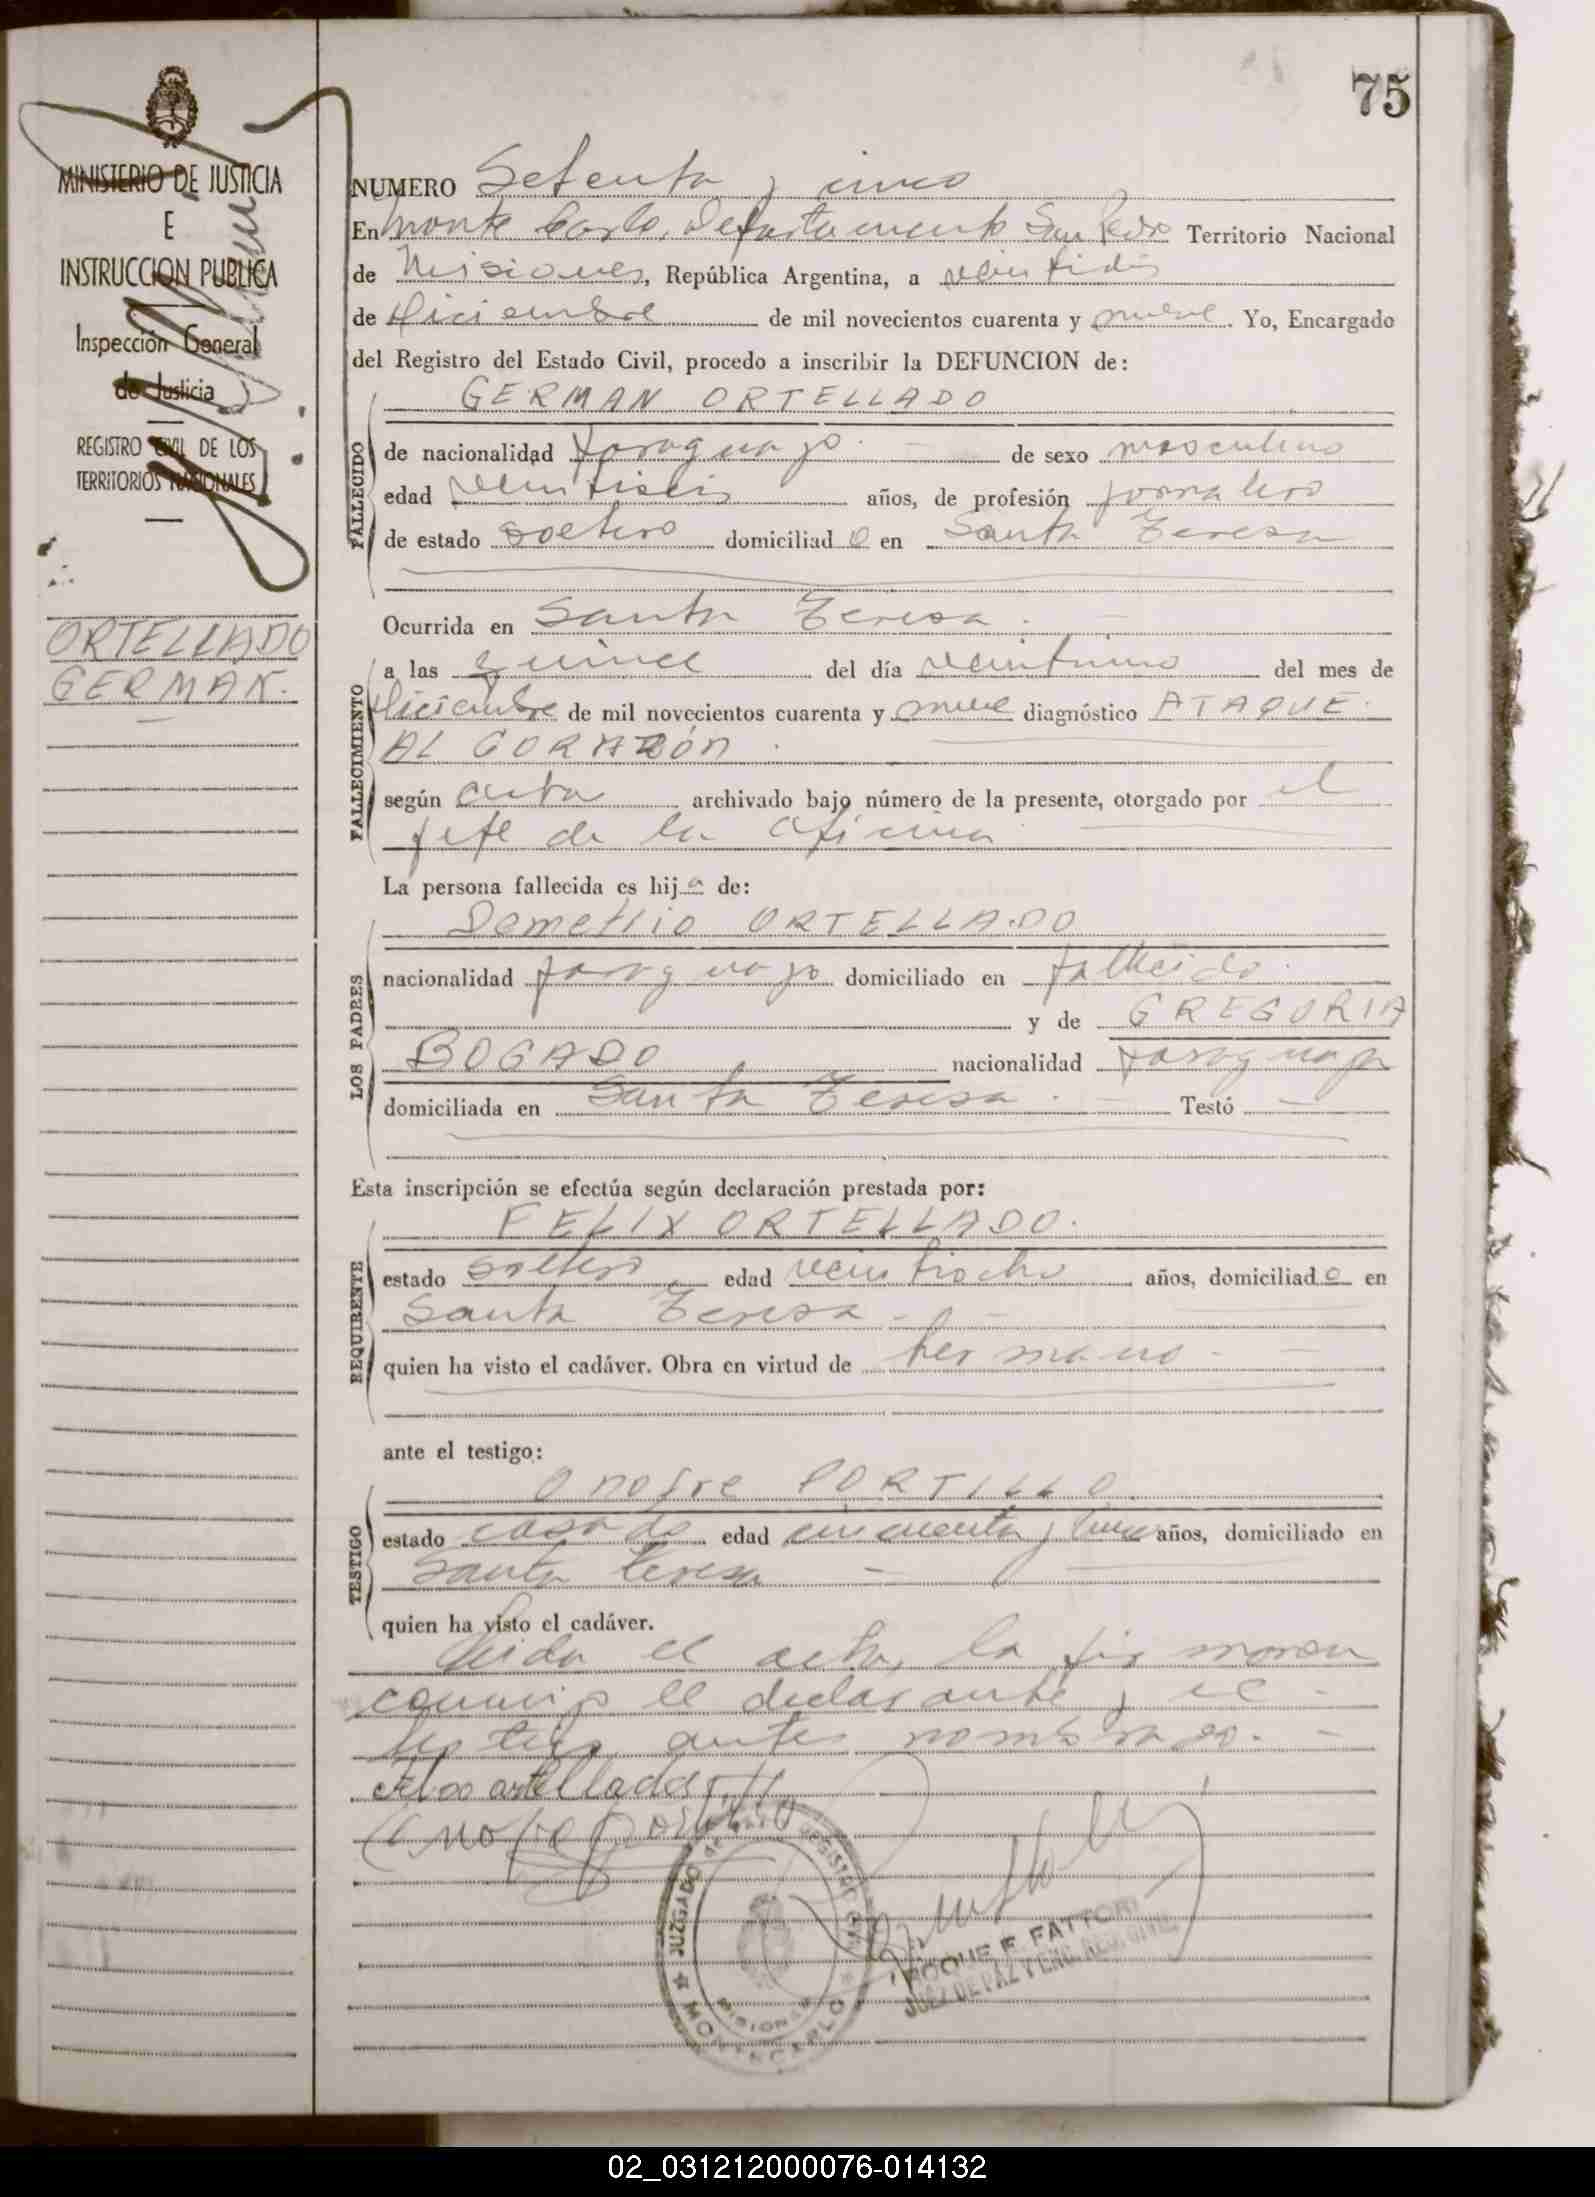 75
MINISTERIO DE JUSTICIA
E
INSTRUCCION PUBLICA
Inspección General
de Justicia
REGISTRO CIVIL DE LOS
TERRITORIOS NACIONALES
ORTELLADO
GERMAN.
NUMERO Setenta y cinco
En Monte Carlo, Departamento San Pedro Territorio Nacional
de Misiones, República Argentina, a veintidós
de Diciembre de mil novecientos cuarenta y nueve. Yo, Encargado
del Registro del Estado Civil, procedo a inscribir la DEFUNCION de:
GERMAN ORTELLADO
FALLECIDO
de nacionalidad paraguayo. de sexo masculino
edad veintiseis años, de profesión jornalero
de estado soltero domiciliado en Santa Teresa
FALLECIMIENTO
Ocurrida en Santa Teresa.
a las quince del día veintiuno del mes de
Diciembre de mil novecientos cuarenta y nueve diagnóstico ATAQUE
AL CORAZÓN
según acta archivado bajo número de la presente, otorgado por el
jefe de la oficina
La persona fallecida es hijo de:
LOS PADRES
Demetrio ORTELLADO
nacionalidad paraguayo domiciliado en fallecido.
y de GREGORIA
BOGADO nacionalidad paraguaya
domiciliada en Santa Teresa. Testó —
Esta inscripción se efectúa según declaración prestada por:
REQUIRENTE
FELIX ORTELLADO.
estado soltero, edad veintiocho años, domiciliado en
Santa Teresa.
quien ha visto el cadáver. Obra en virtud de hermano.
ante el testigo:
TESTIGO
Onofre PORTILLO.
estado casado edad cincuenta y años, domiciliado en
Santa Teresa
quien ha visto el cadáver.
Leida el acta, la firmaron
conmigo el declarante y el
testigo antes nombrado.
ortellado
Onofre Portillo
JUZGADO DE PAZ Y REGISTRO CIVIL
MONTECARLO
MISIONES
ROQUE F. FATTORI
JUEZ DE PAZ Y ENC. REG. CIVIL
02_031212000076-014132